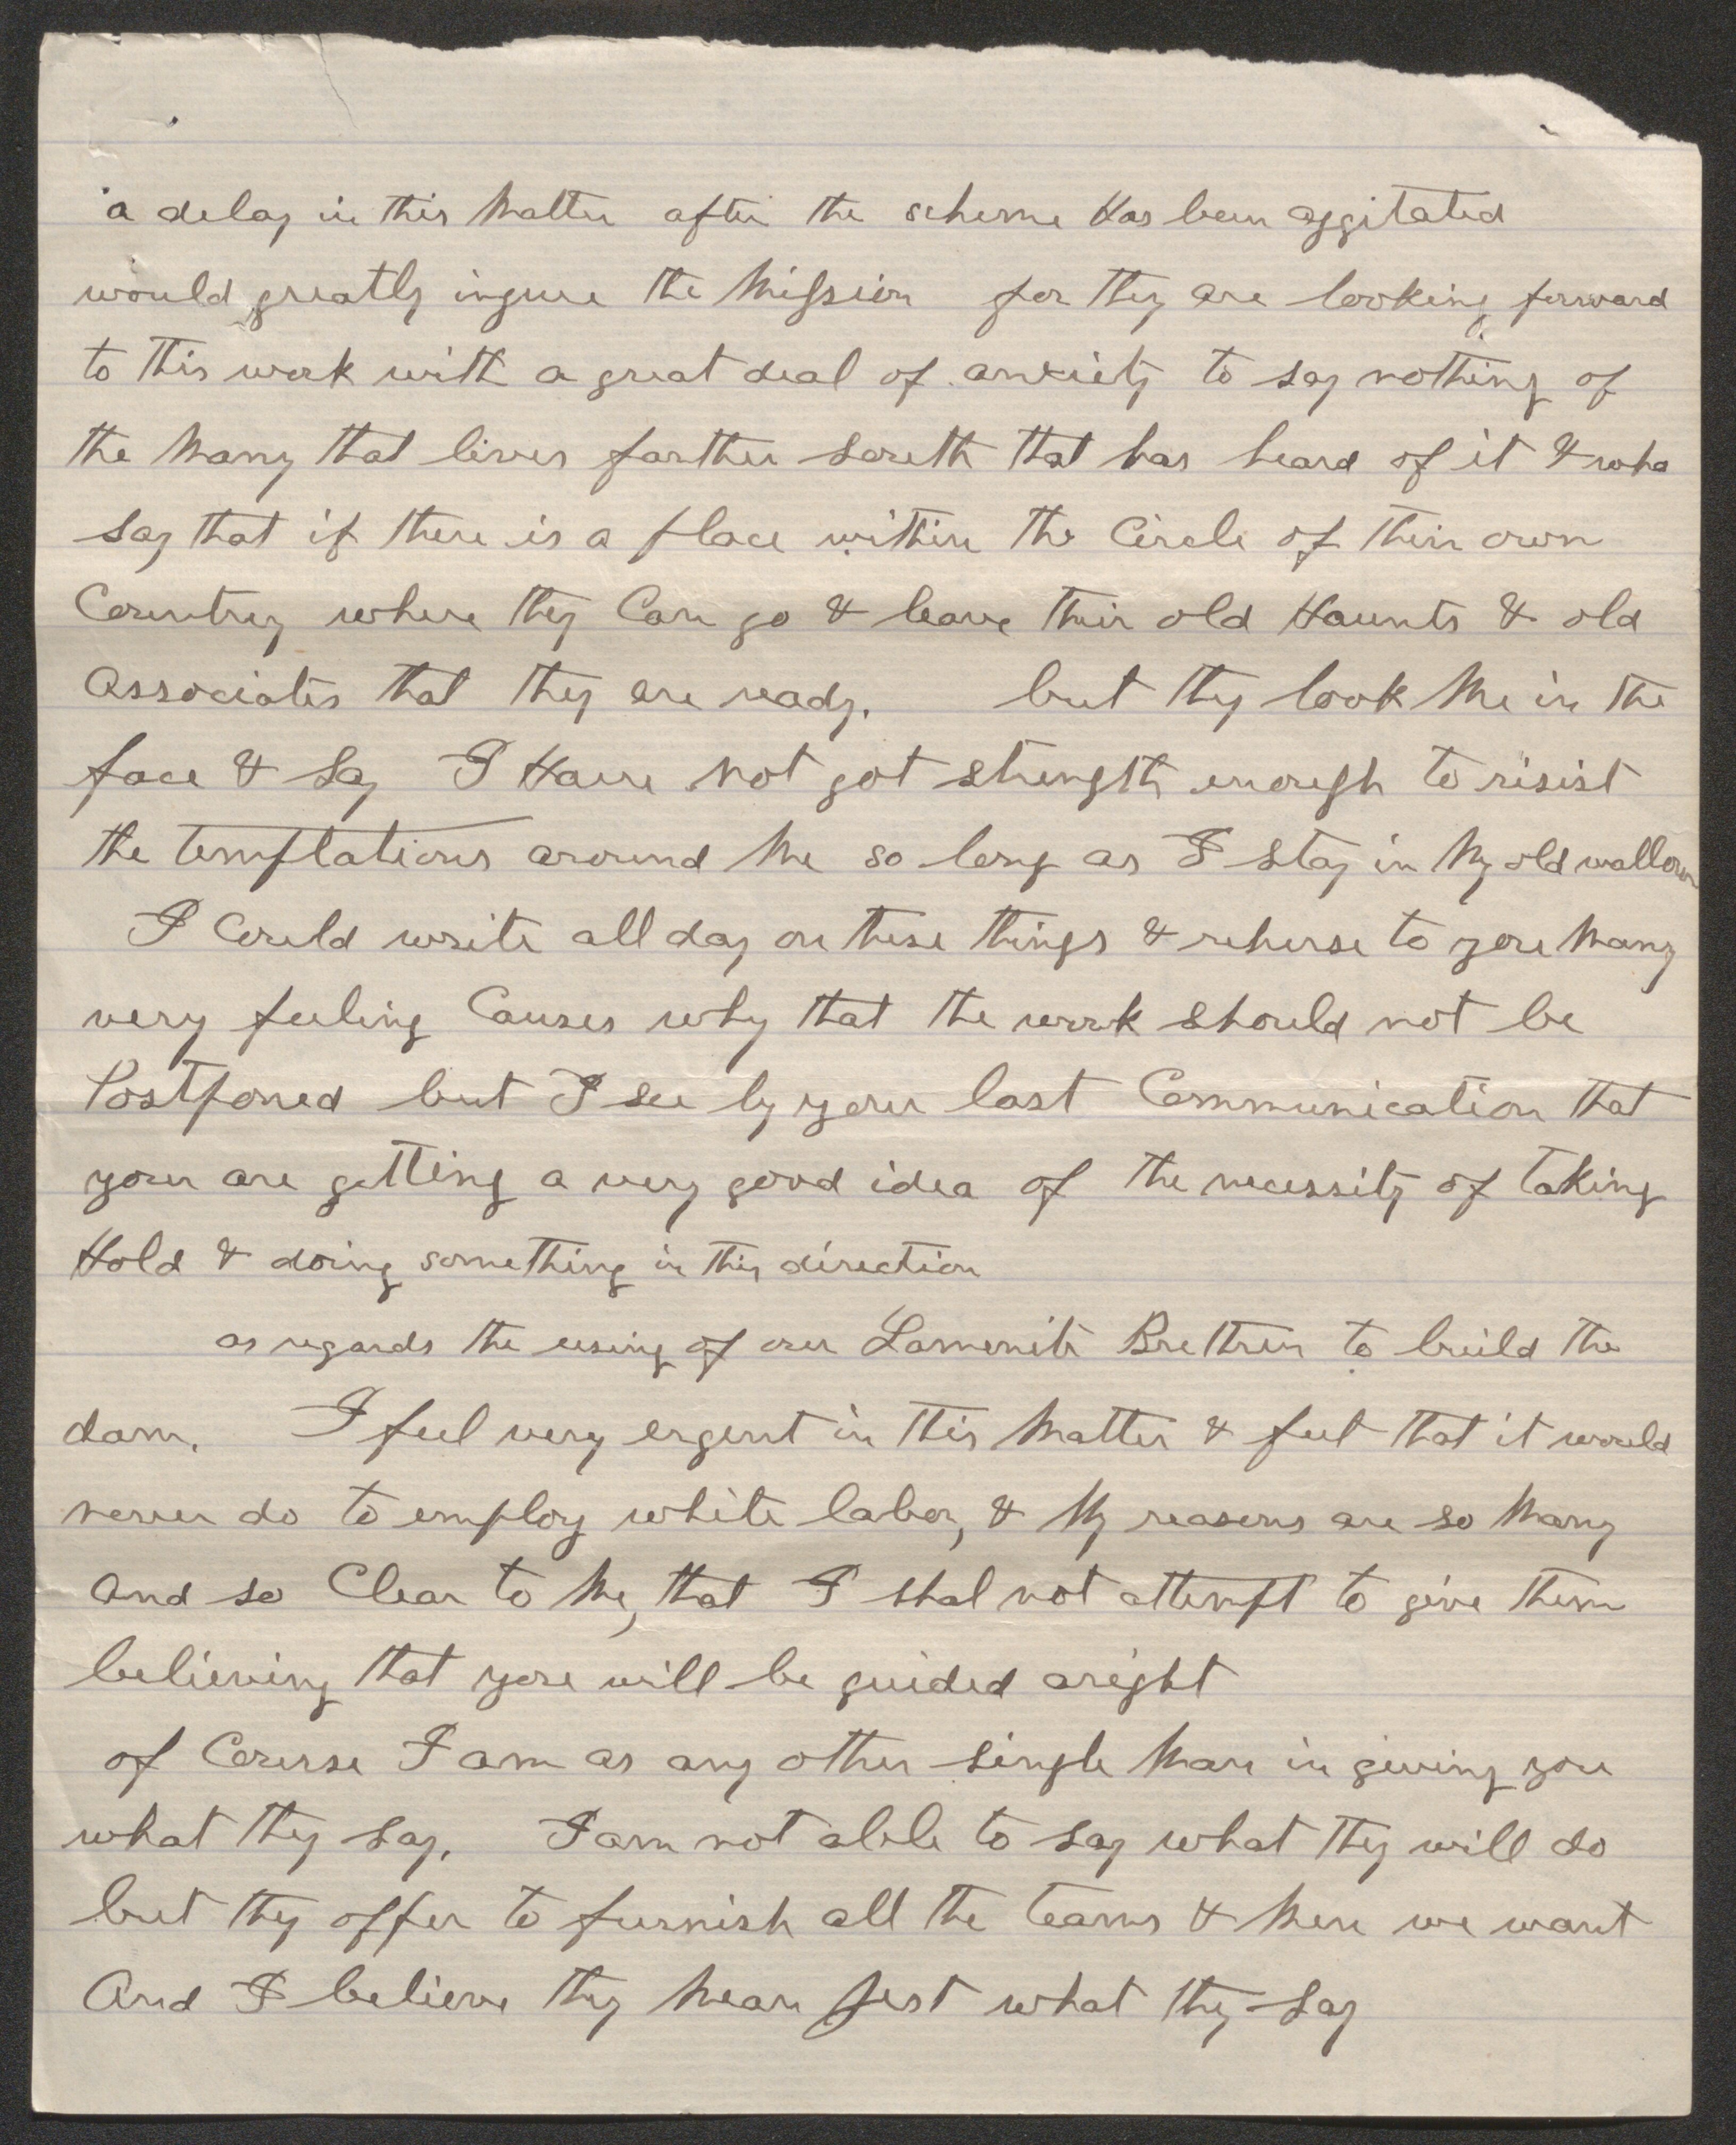 a delay in this Matter after the scheme Has been aggitated
would greatly ingure the Mission for they are looking forward
to this work with a great deal of anxiety to say nothing of
the Many that lives farther south that has heard of it & who
say that if there is a place within the Circle of their own
Country where they Can go & leave their old Haunts & old
associates that they are ready. but they look Me in the
face & say I Have not got strength enough to risist
the temptations around Me so long as I stay in My old wallow
I Could write all day on these things & reherse to you Many
very feeling Causes why that the work should not be
Postponed but I see by your last Communication that
you are getting a very good idea of the necessity of taking
Hold & doing something in this direction
as regards the using of our Lamenite Brethren to build the
dam. I feel very ergent in this Matter & feel that it would
never do to employ white labor, & My reasons are so Many
and so Clear to Me, that I shal not attempt to give them
believing that you will be guided aright
of Course I am as any other single Man in giving you
what they say. I am not able to say what they will do
but they offer to furnish all the teams & Men we want
And I believe they Mean just what they say